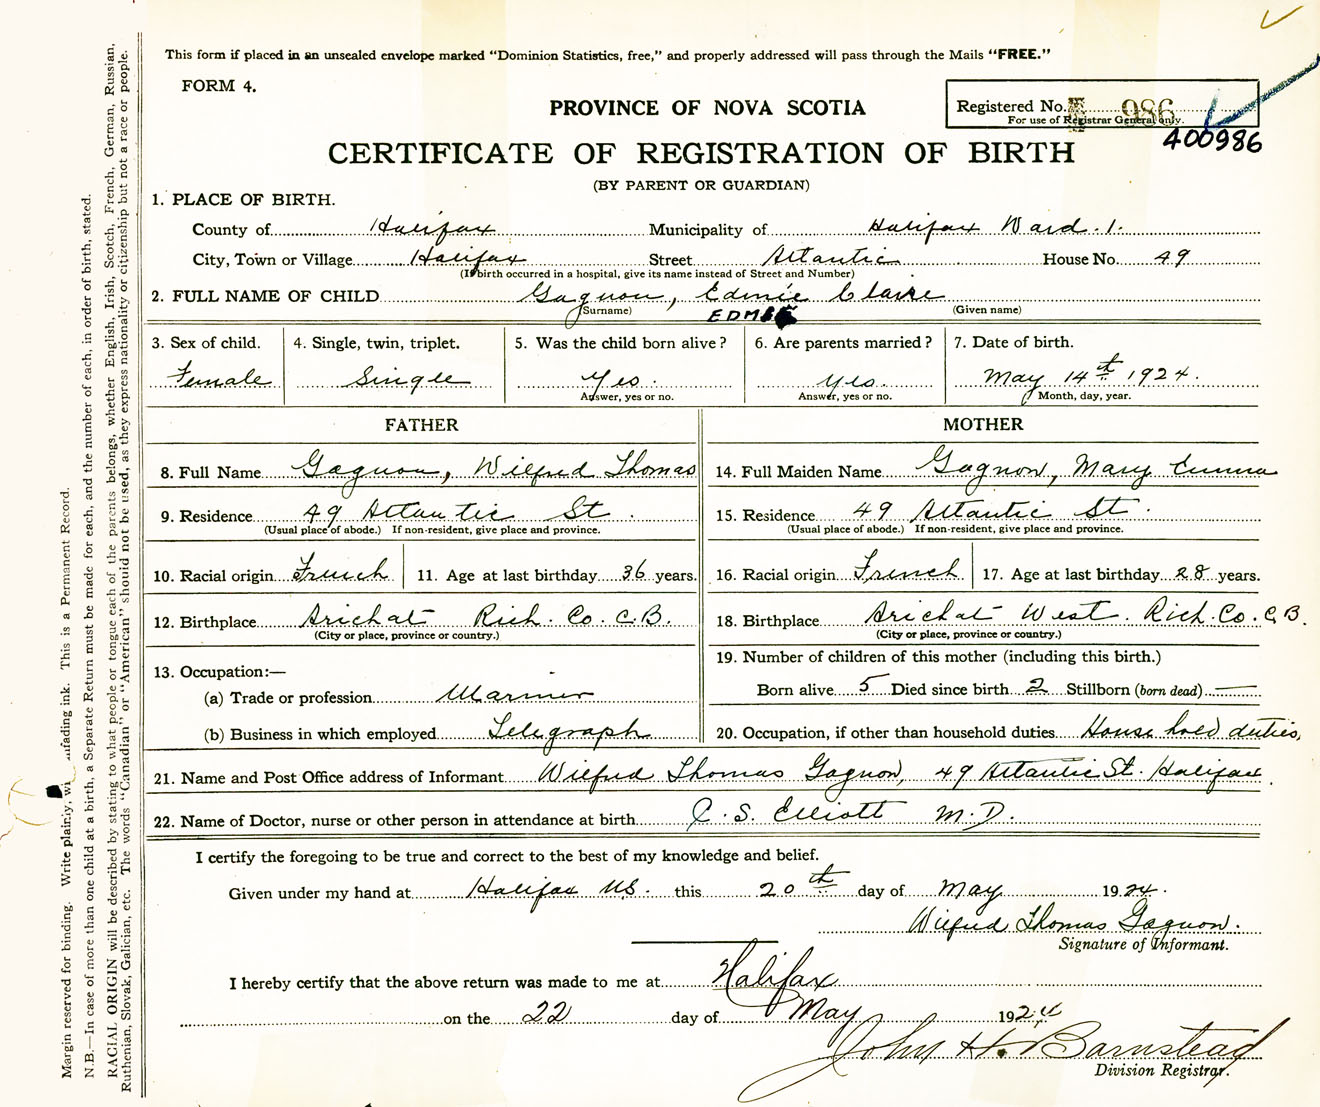 This form if placed in an unsealed envelope marked “Dominion Statistics, free,” and properly addressed will pass through the Mails “FREE.”
FORM 4.
PROVINCE OF NOVA SCOTIA
Registered No. 986
For use of Registrar General only.
400986
CERTIFICATE OF REGISTRATION OF BIRTH
(BY PARENT OR GUARDIAN)
1. PLACE OF BIRTH.
County of Halifax Municipality of Halifax Ward. 1.
City, Town or Village Halifax Street Atlantic House No. 49
(If birth occurred in a hospital, give its name instead of Street and Number)
2. FULL NAME OF CHILD Gagnon, Edmée Claire
(Surname) (Given name)
3. Sex of child. 4. Single, twin, triplet. 5. Was the child born alive? 6. Are parents married? 7. Date of birth.
Female Single Yes. Yes. May 14th 1924.
Answer, yes or no. Answer, yes or no. Month, day, year.
FATHER MOTHER
8. Full Name Gagnon, Wilfred Thomas 14. Full Maiden Name Gagnon, Mary Emma
9. Residence 49 Atlantic St. 15. Residence 49 Atlantic St.
(Usual place of abode.) If non-resident, give place and province. (Usual place of abode.) If non-resident, give place and province.
10. Racial origin French 11. Age at last birthday 36 years. 16. Racial origin French 17. Age at last birthday 28 years.
12. Birthplace Arichat Rich. Co. C.B. 18. Birthplace Arichat West. Rich. Co. C.B.
(City or place, province or country.) (City or place, province or country.)
13. Occupation:— 19. Number of children of this mother (including this birth.)
(a) Trade or profession Mariner Born alive 5 Died since birth 2 Stillborn (born dead) —
(b) Business in which employed Telegraph 20. Occupation, if other than household duties House hold duties,
21. Name and Post Office address of Informant Wilfred Thomas Gagnon, 49 Atlantic St. Halifax.
22. Name of Doctor, nurse or other person in attendance at birth C. S. Elliott M.D.
I certify the foregoing to be true and correct to the best of my knowledge and belief.
Given under my hand at Halifax N.S. this 20th day of May 1924.
Wilfred Thomas Gagnon.
Signature of Informant.
I hereby certify that the above return was made to me at Halifax
on the 22 day of May 1924
John H. Barnstead
Division Registrar.
Margin reserved for binding. Write plainly, unfading ink. This is a Permanent Record.
N.B.—In case of more than one child at a birth, a Separate Return must be made for each, and the number of each, in order of birth, stated.
RACIAL ORIGIN will be described by stating to what people or tongue each of the parents belongs, whether English, Irish, Scotch, French, German, Russian,
Ruthenian, Slovak, Galician, etc. The words “Canadian” or “American” should not be used, as they express nationality or citizenship but not a race or people.